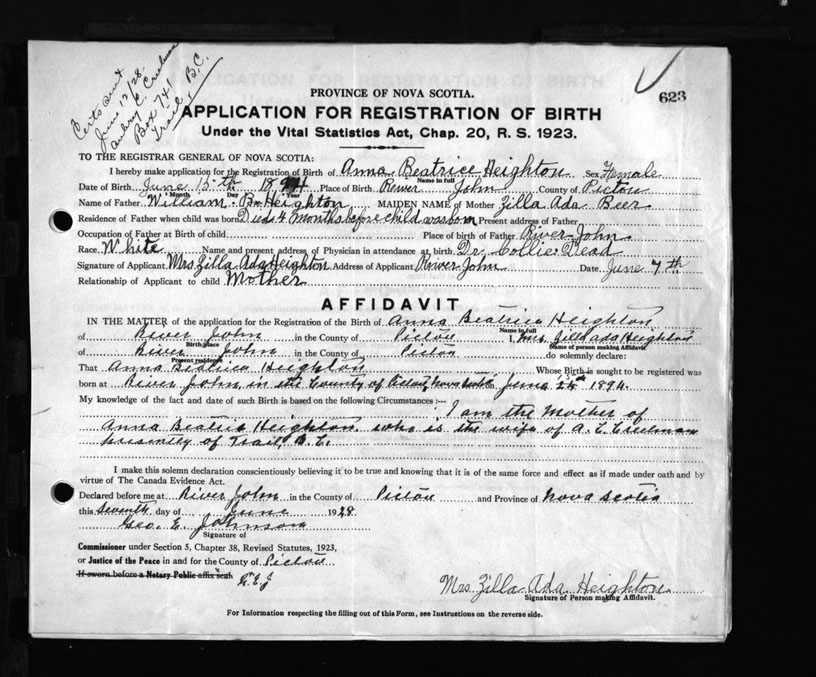 Certs sent
June 13/28.
Aubrey C. Creelman
Box 74
Trail, B.C.
623
PROVINCE OF NOVA SCOTIA.
APPLICATION FOR REGISTRATION OF BIRTH
Under the Vital Statistics Act, Chap. 20, R. S. 1923.
TO THE REGISTRAR GENERAL OF NOVA SCOTIA:
I hereby make application for the Registration of Birth of Anna Beatrice Heighton Sex Female
Name in full
Date of Birth June 15th 1894 Place of Birth River John County of Pictou
Month Day Year
Name of Father William B. Heighton MAIDEN NAME of Mother Zilla Ada Beer
Residence of Father when child was born Died 4 months before child was born Present address of Father
Occupation of Father at Birth of child Place of birth of Father River John
Race White Name and present address of Physician in attendance at birth Dr. Collie Dead
Signature of Applicant Mrs Zilla Ada Heighton Address of Applicant River John Date June 7th
Relationship of Applicant to child Mother
AFFIDAVIT
IN THE MATTER of the application for the Registration of the Birth of Anna Beatrice Heighton
Name in full
of River John in the County of Pictou I, Mrs. Zilla Ada Heighton
Birth place Name of person making Affidavit
of River John in the County of Pictou do solemnly declare:
Present residence
That Anna Beatrice Heighton Whose Birth is sought to be registered was
born at River John, in the County of Pictou, Nova Scotia June 1894.
My knowledge of the fact and date of such Birth is based on the following Circumstances :—
I am the Mother of
Anna Beatrice Heighton who is the wife of A. C. Creelman
presently of Trail, B.C.
I make this solemn declaration conscientiously believing it to be true and knowing that it is of the same force and effect as if made under oath and by
virtue of The Canada Evidence Act.
Declared before me at River John in the County of Pictou and Province of Nova Scotia
this Seventh day of June 1928
Geo. E. Johnson
Signature of
Commissioner under Section 5, Chapter 38, Revised Statutes, 1923,
or Justice of the Peace in and for the County of Pictou
If sworn before a Notary Public affix seal G.E.J
Mrs. Zilla Ada Heighton
Signature of Person making Affidavit.
For Information respecting the filling out of this Form, see Instructions on the reverse side.